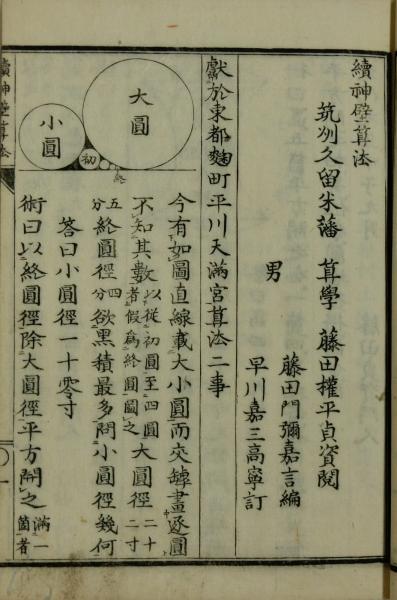 續神壁算法
筑州久留米藩 算學 藤田權平貞資閱
男 藤田門彌嘉言編
早川嘉三高寧訂
獻於東都麴町平川天滿宮算法二事
大圓
小圓
初
終
今有如圖直線載大小圓而交罅畫逐圓
不知其數以從初圓至四圓者假爲終圓圖之大圓徑二十
五分終圓徑四分欲黑積最多問小圓徑幾何
答曰小圓徑一十零寸
術曰以終圓徑除大圓徑平方開之滿一箇者
續神壁算法
一